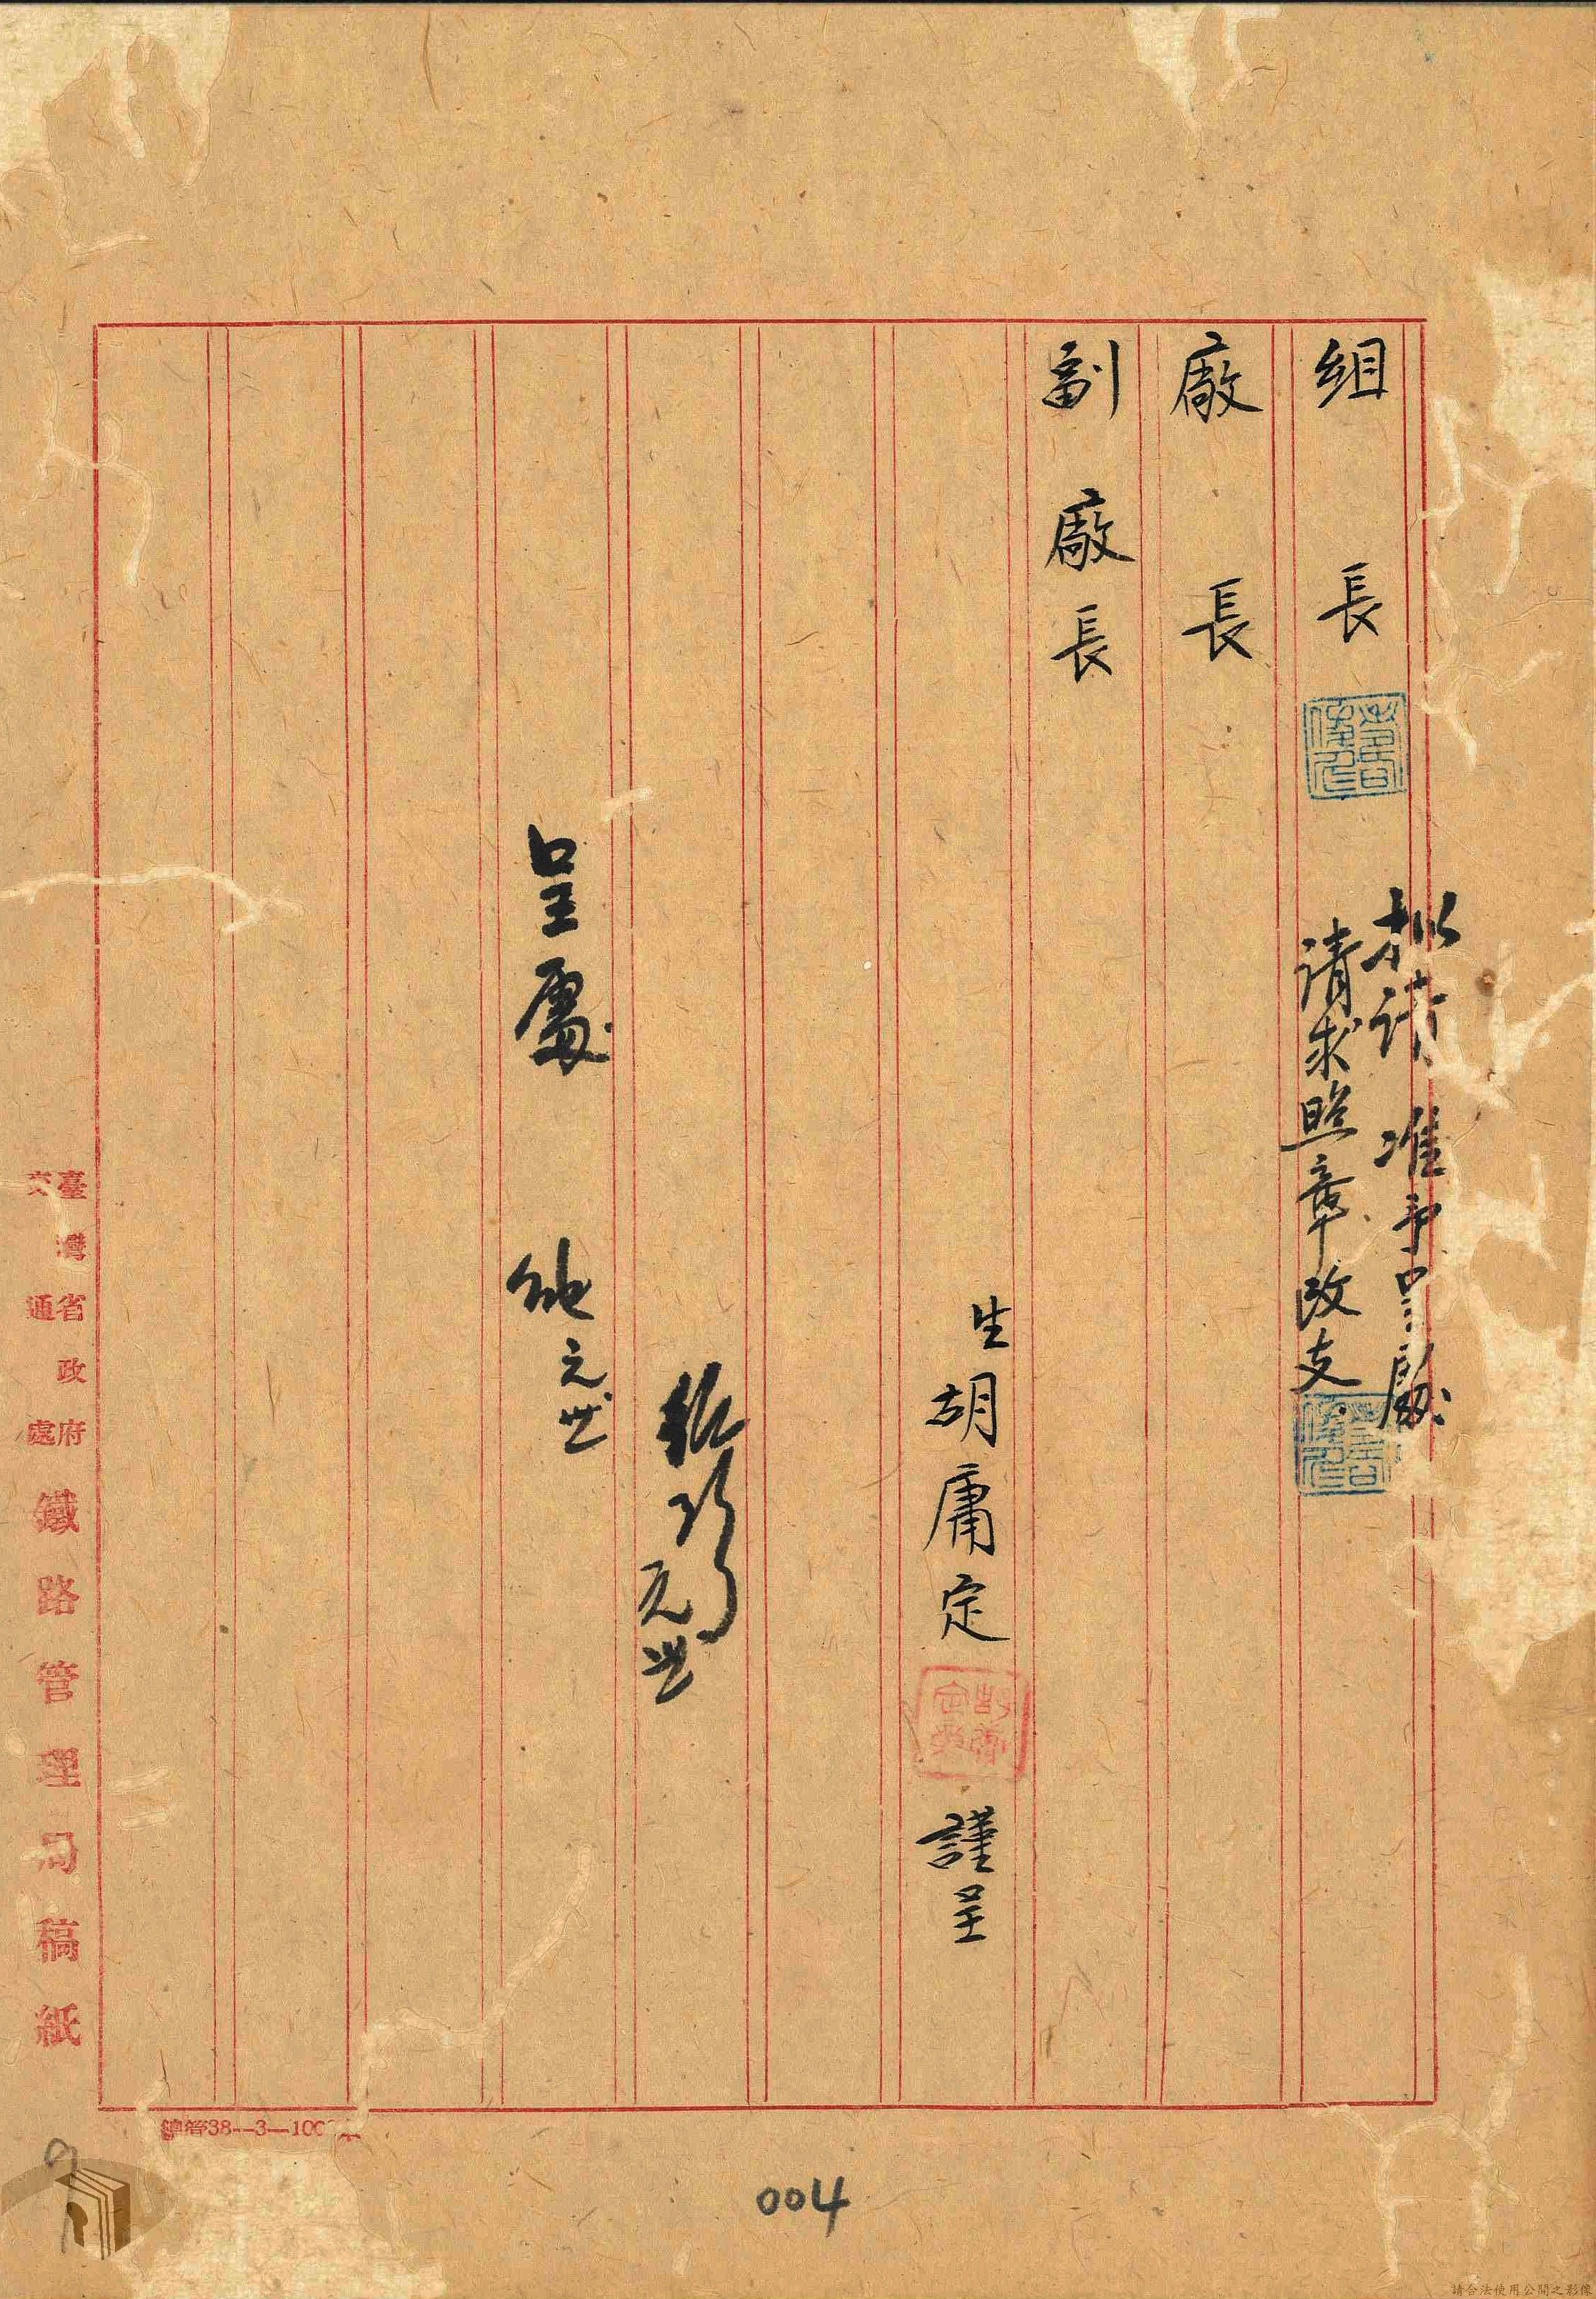 組長
擬請准予呈處
請求照章改支
廠長
副廠長
生胡庸定謹呈
元廿
呈處
元廿
臺灣省政府
交通處
鐵路管理局稿紙
38--3--100
004
請合法使用公開之影像